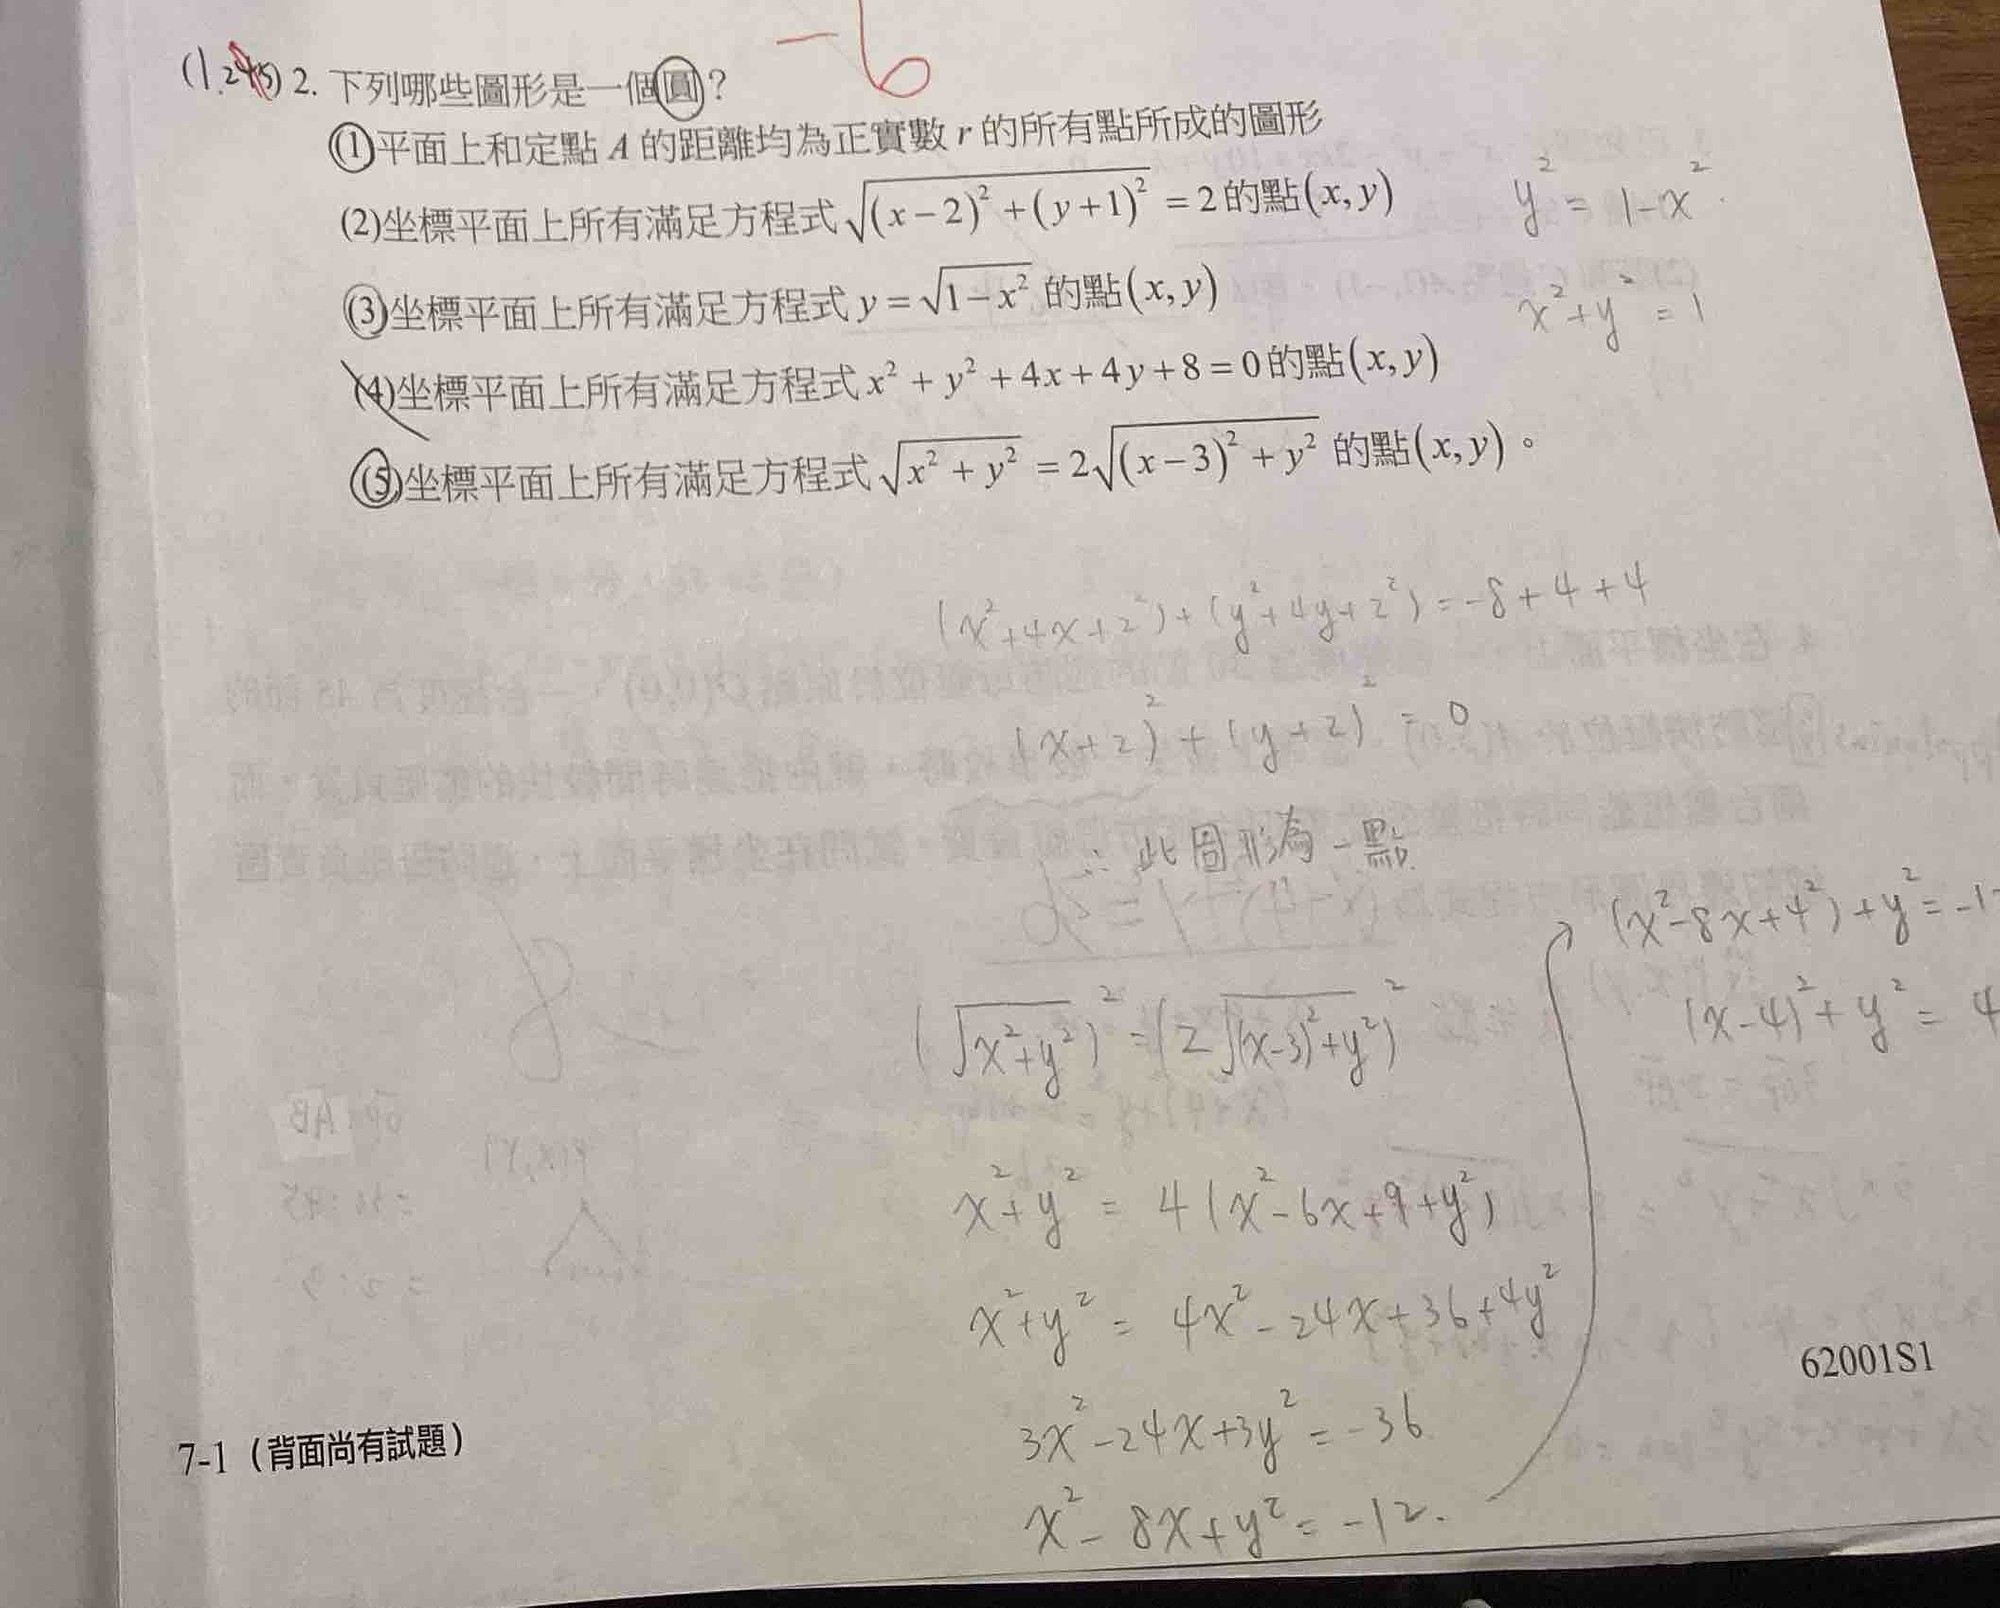 -6
2. 下列哪些圖形是一個圓？
(1)平面上和定點 A 的距離均為正實數 r 的所有點所成的圖形
(2)坐標平面上所有滿足方程式 √((x−2)²+(y+1)²) = 2 的點(x, y)
y² = 1-x²
(3)坐標平面上所有滿足方程式 y = √(1−x²) 的點(x, y)
x²+y² = 1
(4)坐標平面上所有滿足方程式 x² + y² + 4x + 4y + 8 = 0 的點(x, y)
(5)坐標平面上所有滿足方程式 √(x² + y²) = 2√((x−3)² + y²) 的點(x, y)。
(x²+4x+2²)+(y²+4y+2²)=-8+4+4
(x+2)²+(y+2)²=0
∴ 此圖形為一點
(√(x²+y²))²=(2√((x-3)²+y²))²
x²+y² = 4(x²-6x+9+y²)
x²+y² = 4x²-24x+36+4y²
3x²-24x+3y² = -36
x²-8x+y² = -12.
(x²-8x+4²)+y²=-1
(x-4)²+y² = 4
62001S1
7-1（背面尚有試題）